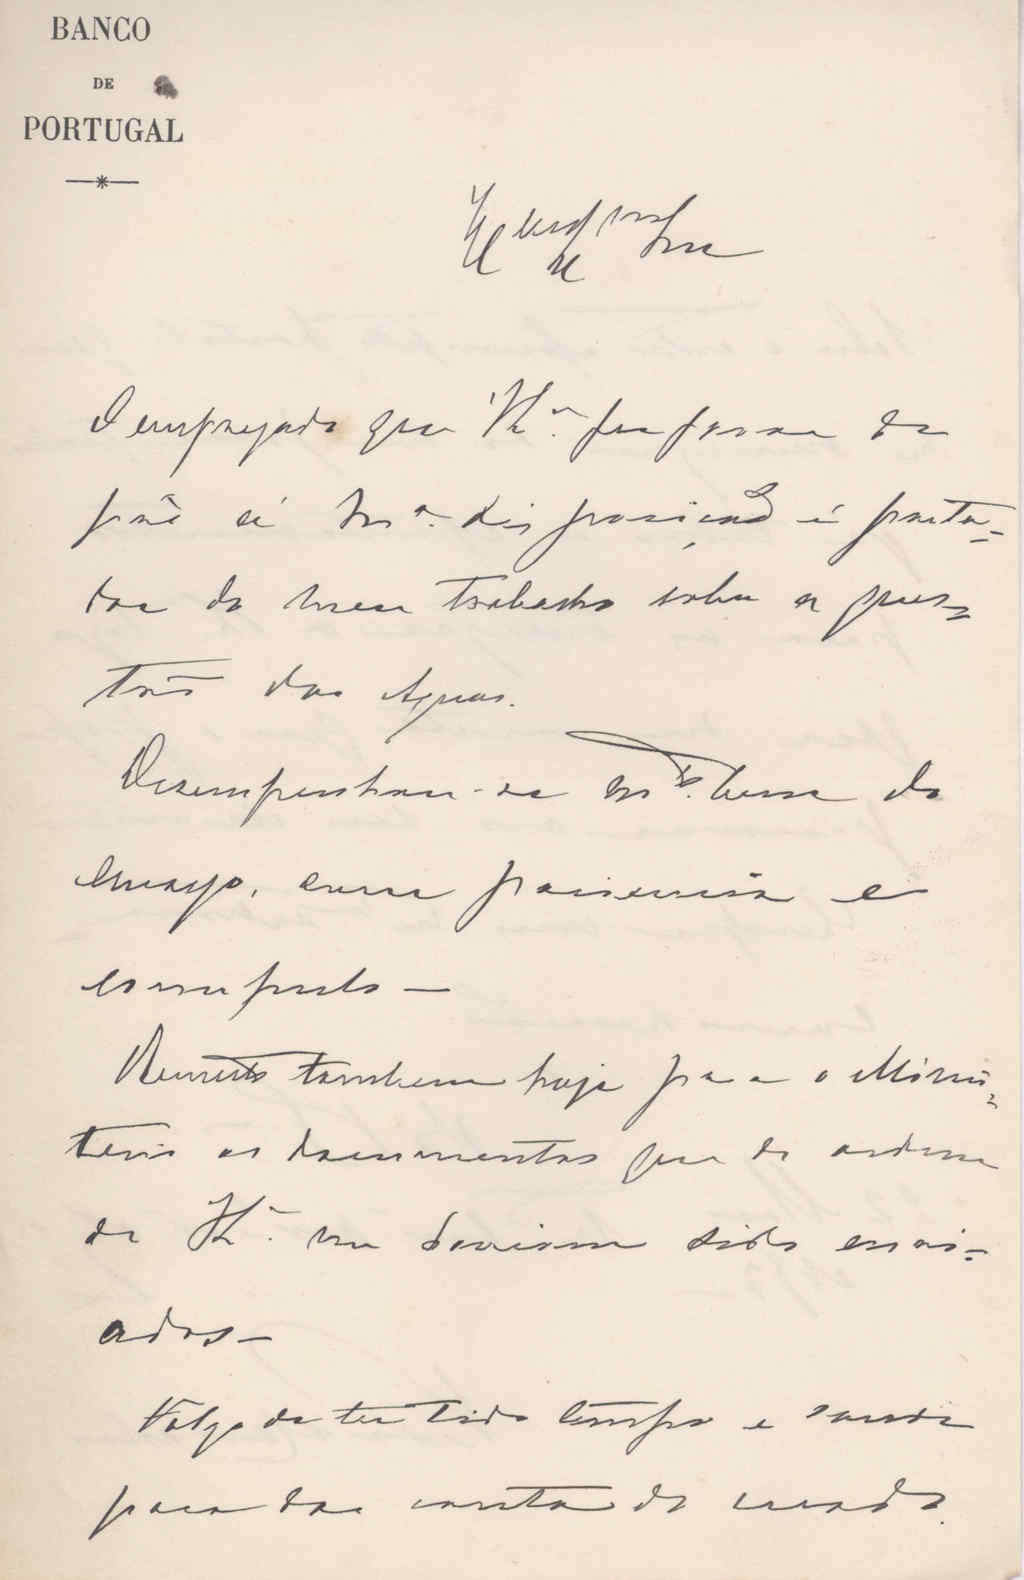 BANCO
DE
PORTUGAL
O empregado que V. Ex.ª fez favor de
pôr á m.ª disposição é porta-
dor do meu trabalho sobre a ques-
tão das Aguas.
Desempenhou-se m.to bem do
encargo, com paciencia e
escrupulo —
Remetto tambem hoje para o Minis-
terio os documentos que de ordem
de V. Ex.ª me haviam sido envi-
ados —
Folgo de ter tido tempo e saude
para dar conta do